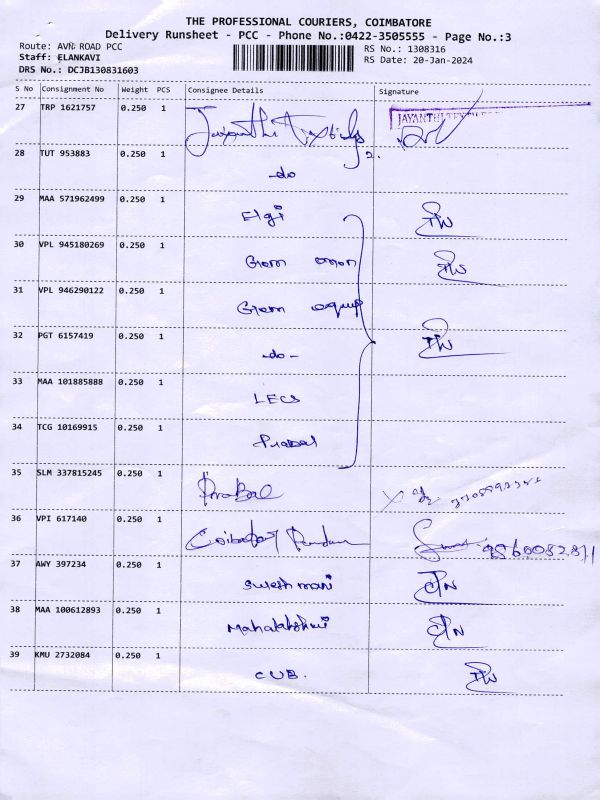 THE PROFESSIONAL COURIERS, COIMBATORE
Delivery Runsheet - PCC - Phone No.:0422-3505555 - Page No.:3
Route: AVN ROAD PCC RS No.: 1308316
Staff: ELANKAVI RS Date: 20-Jan-2024
DRS No.: DCJB130831603
S No Consignment No Weight PCS Consignee Details Signature
27 TRP 1621757 0.250 1 Jayanthi JAYANTHI TEX
28 TUT 953883 0.250 1 -do
29 MAA 571962499 0.250 1 Elgi
30 VPL 945180269 0.250 1
31 VPL 946290122 0.250 1
32 PGT 6157419 0.250 1 -do-
33 MAA 101885888 0.250 1 LECS
34 TCG 10169915 0.250 1
35 SLM 337815245 0.250 1
36 VPI 617140 0.250 1
37 AWY 397234 0.250 1 Suresh mani
38 MAA 100612893 0.250 1 Mahalakshmi
39 KMU 2732084 0.250 1 CUB.